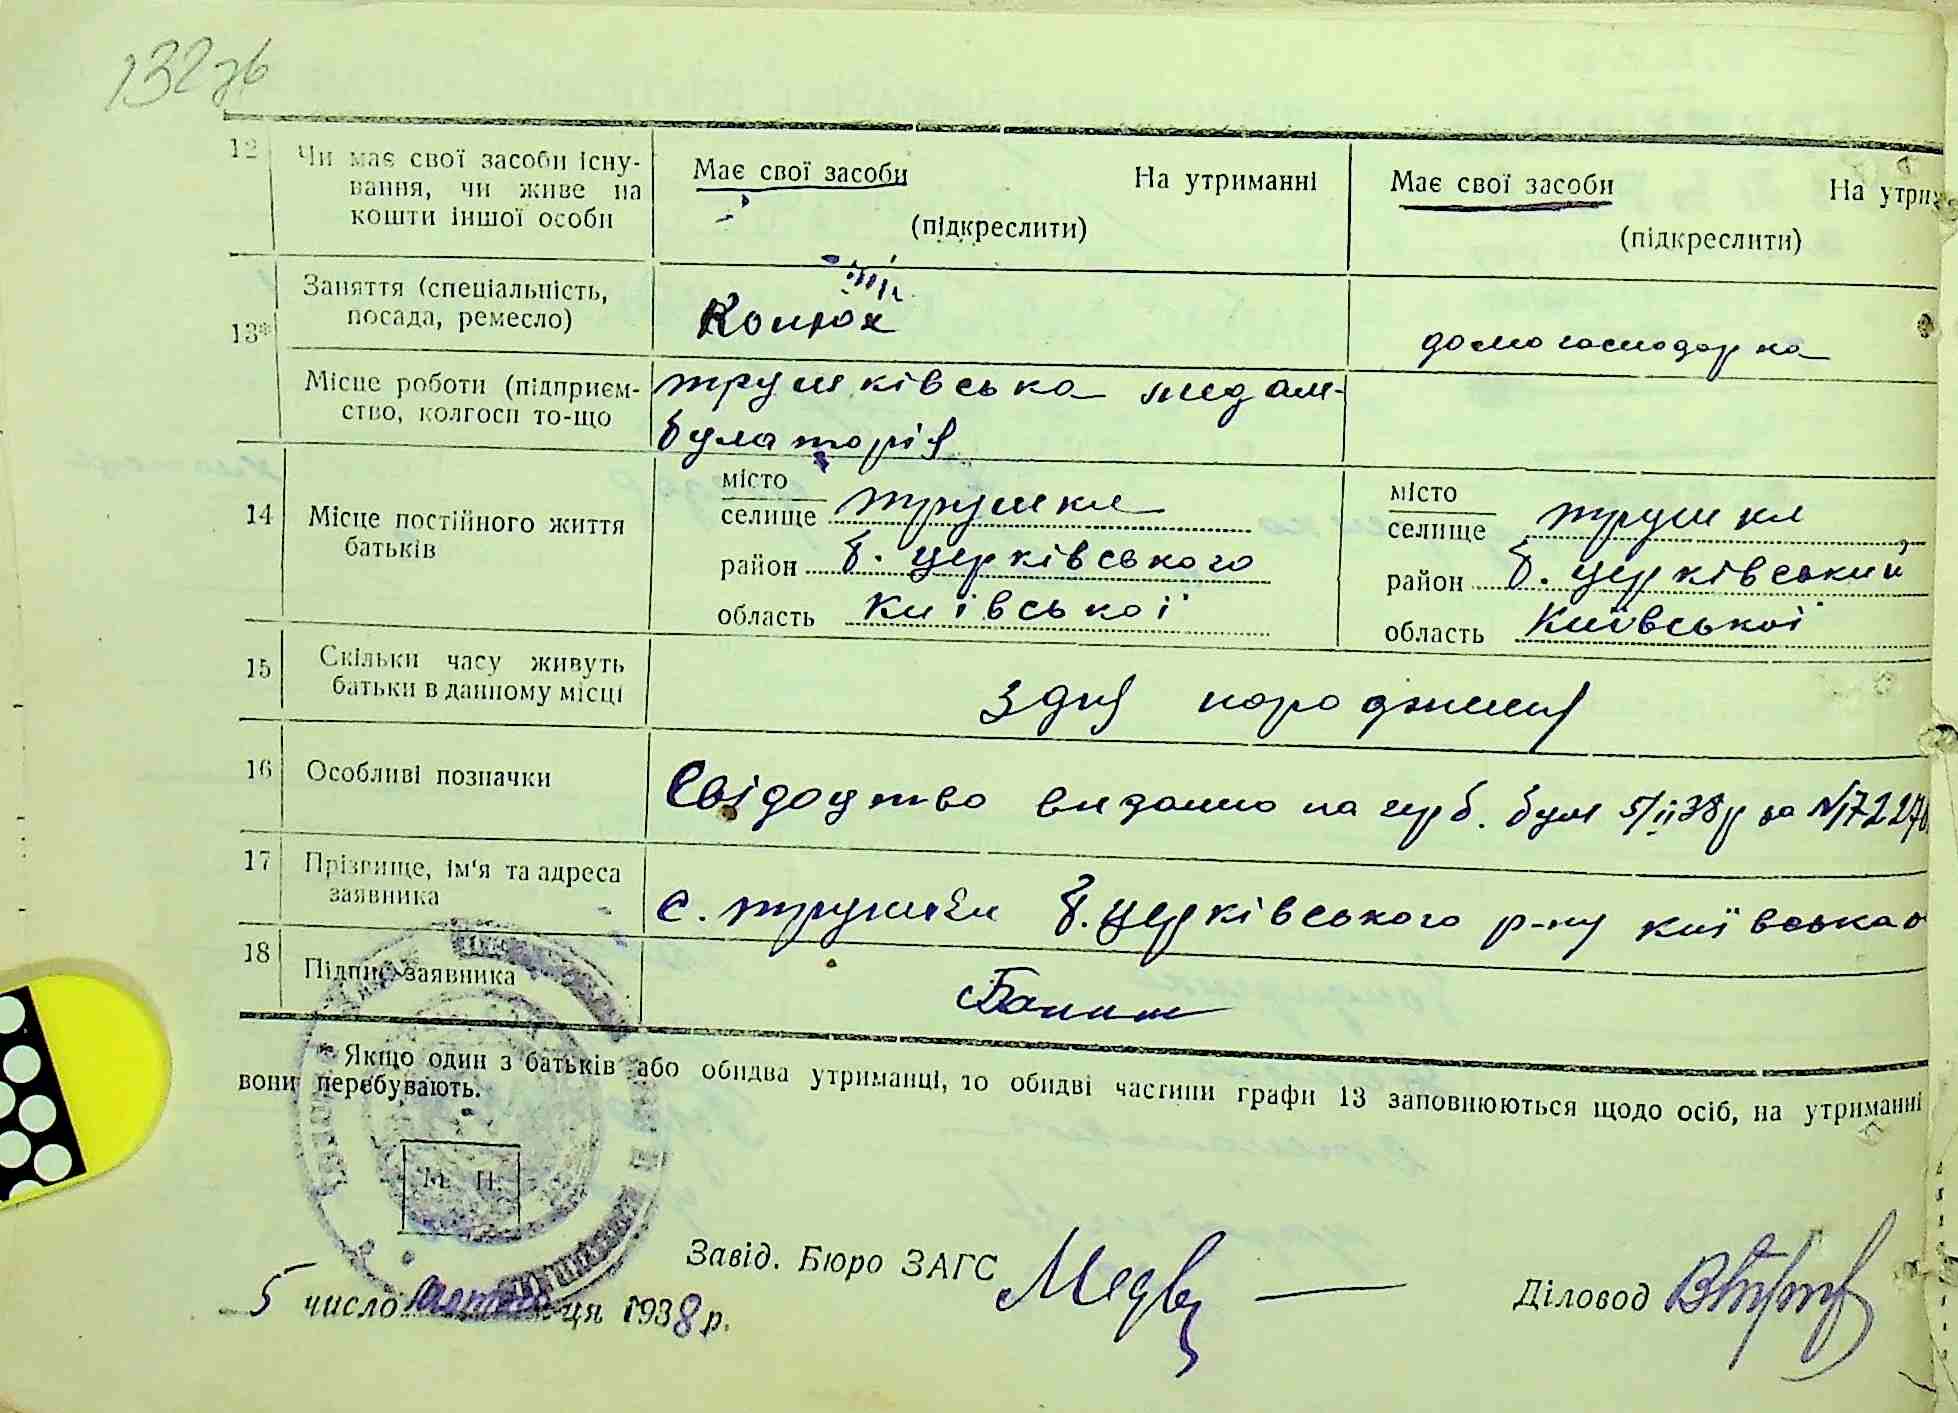 132зв
12 Чи має свої засоби існу-
вання, чи живе на
кошти іншої особи
Має свої засоби На утриманні
(підкреслити)
Має свої засоби На утрим
(підкреслити)
13* Заняття (спеціальність,
посада, ремесло)
Конюх
домогосподарка
Місце роботи (підприєм-
ство, колгосп то-що
трушківська медам-
булаторія
14 Місце постійного життя
батьків
місто
селище трушки
район б. церківського
область київської
місто
селище трушки
район б. церківський
область Київської
15 Скільки часу живуть
батьки в данному місці
З дня народження
16 Особливі позначки
Свідоцтво видано на герб. бум 5/II 38р за №172270
17 Прізвище, ім'я та адреса
заявника
с. трушки б. церківського р-ну київська о
18 Підпис заявника
* Якщо один з батьків або обидва утриманці, то обидві частини графи 13 заповнюються щодо осіб, на утриманні
вони перебувають.
М. П.
Завід. Бюро ЗАГС
Діловод
5 число ця 1938 р.